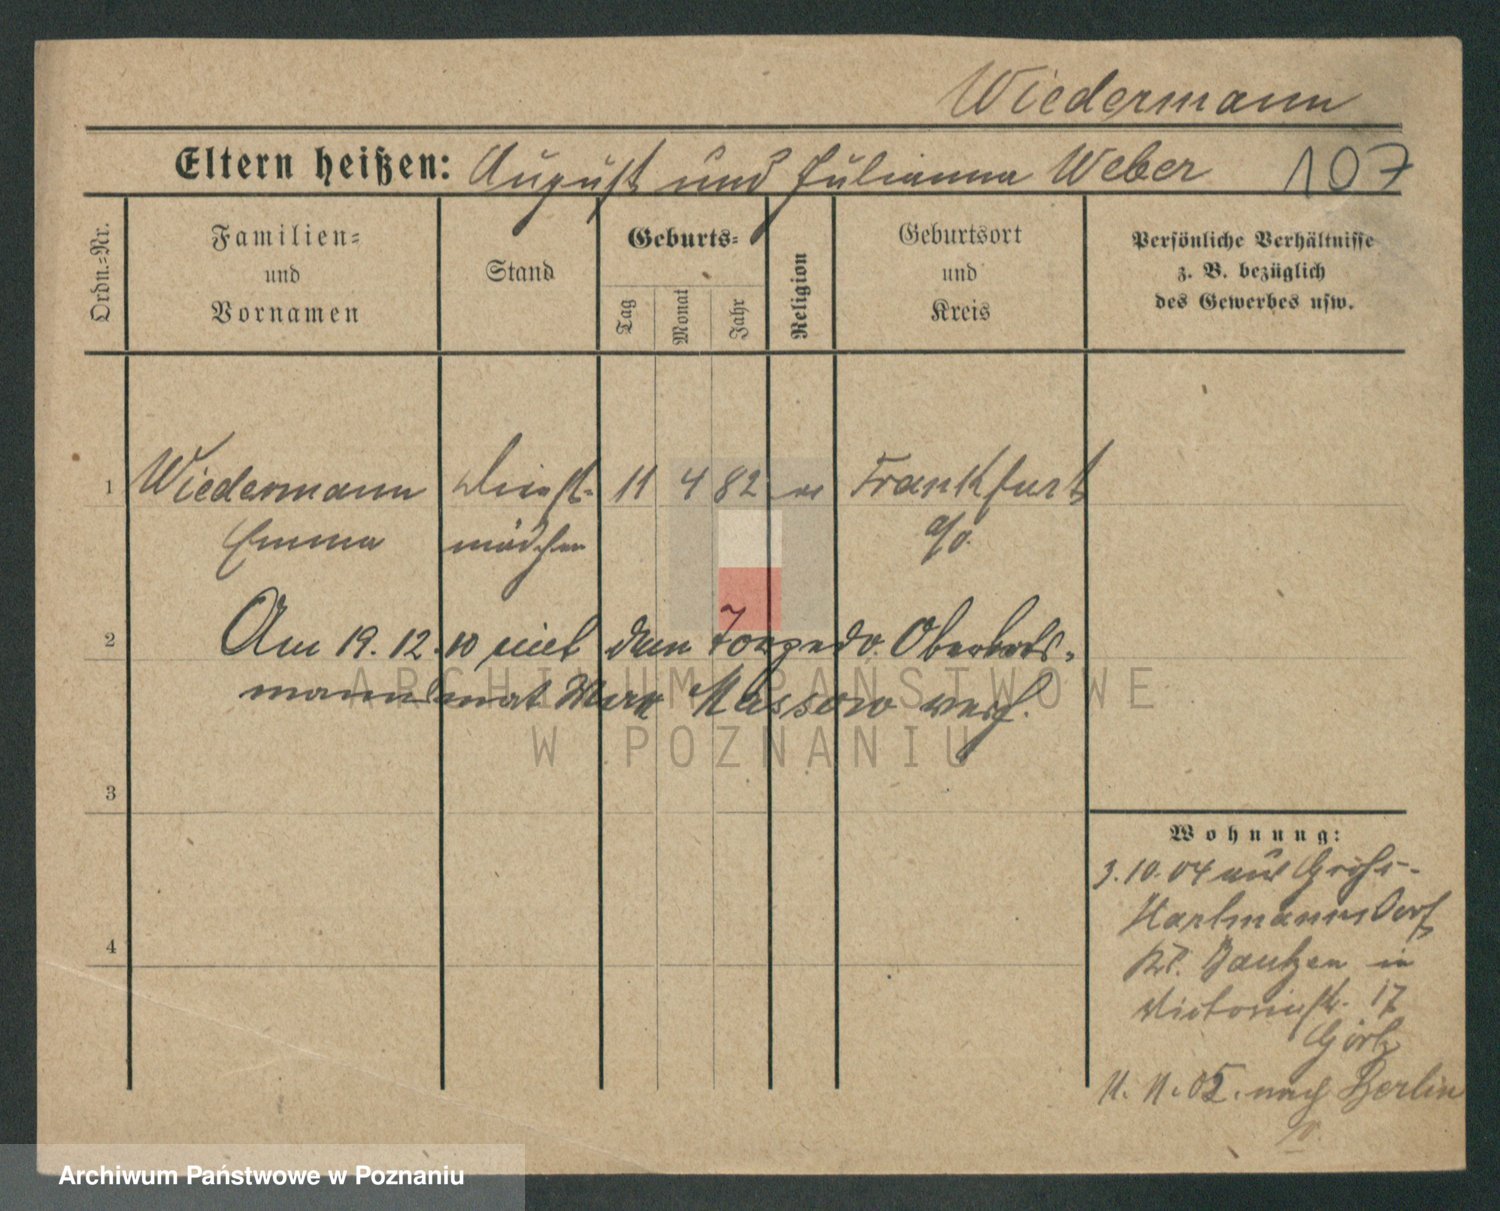 Wiedermann
Eltern heißen: August und Julianna Weber 107
Ordn.=Nr.
Familien=
und
Vornamen
Stand
Geburts=
Tag
Monat
Jahr
Religion
Geburtsort
und
Kreis
Persönliche Verhältnisse
z. B. bezüglich
des Gewerbes usw.
1 Wiedermann Dienst- 11 4 82 Frankfurt
Emma mädchen a/O.
2 Am 19. 12. 10 mit dem Torpedo Oberboots-
mannsmat Massow verh.
3
Wohnung:
3. 10. 04 aus Groß-
Hartmannsdorf
Kr. Bautzen in
Victoriastr. 17
4
11. 11. 05. nach Berlin
ARCHIWUM PAŃSTWOWE
W POZNANIU
Archiwum Państwowe w Poznaniu